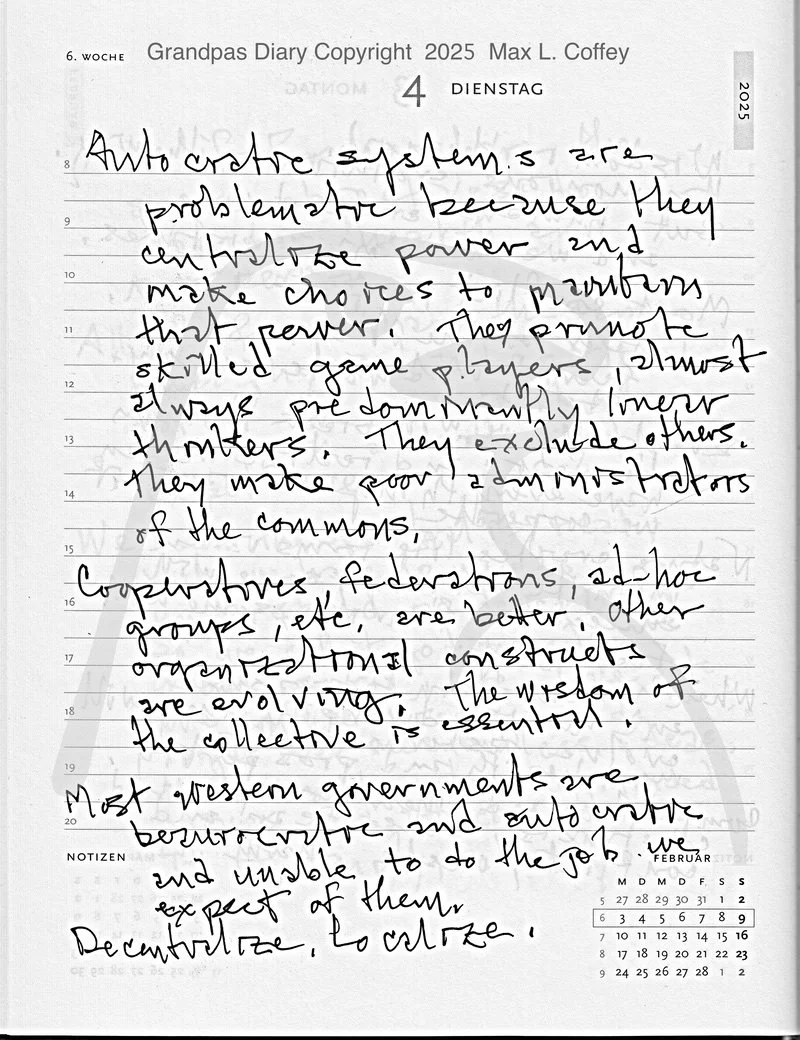 6. WOCHE Grandpas Diary Copyright 2025 Max L. Coffey
4 DIENSTAG
2025
8 Autocratic systems are
problematic because they
9
centralize power and
10
make choices to maintain
11 that power. They promote
skilled game players, almost
12
always predominantly linear
13 thinkers. They exclude others.
they make poor administrators
14
of the commons.
15
Cooperatives, federations, ad-hoc
16
groups, etc. are better. Other
17 organizational constructs
are evolving. The wisdom of
18
the collective is essential.
19
Most western governments are
20
beaurocratic and autocratic
NOTIZEN and unable to do the job we
expect of them.
Decentralize, Localize.
FEBRUAR
M D M D F S S
5 27 28 29 30 31 1 2
6 3 4 5 6 7 8 9
7 10 11 12 13 14 15 16
8 17 18 19 20 21 22 23
9 24 25 26 27 28 1 2